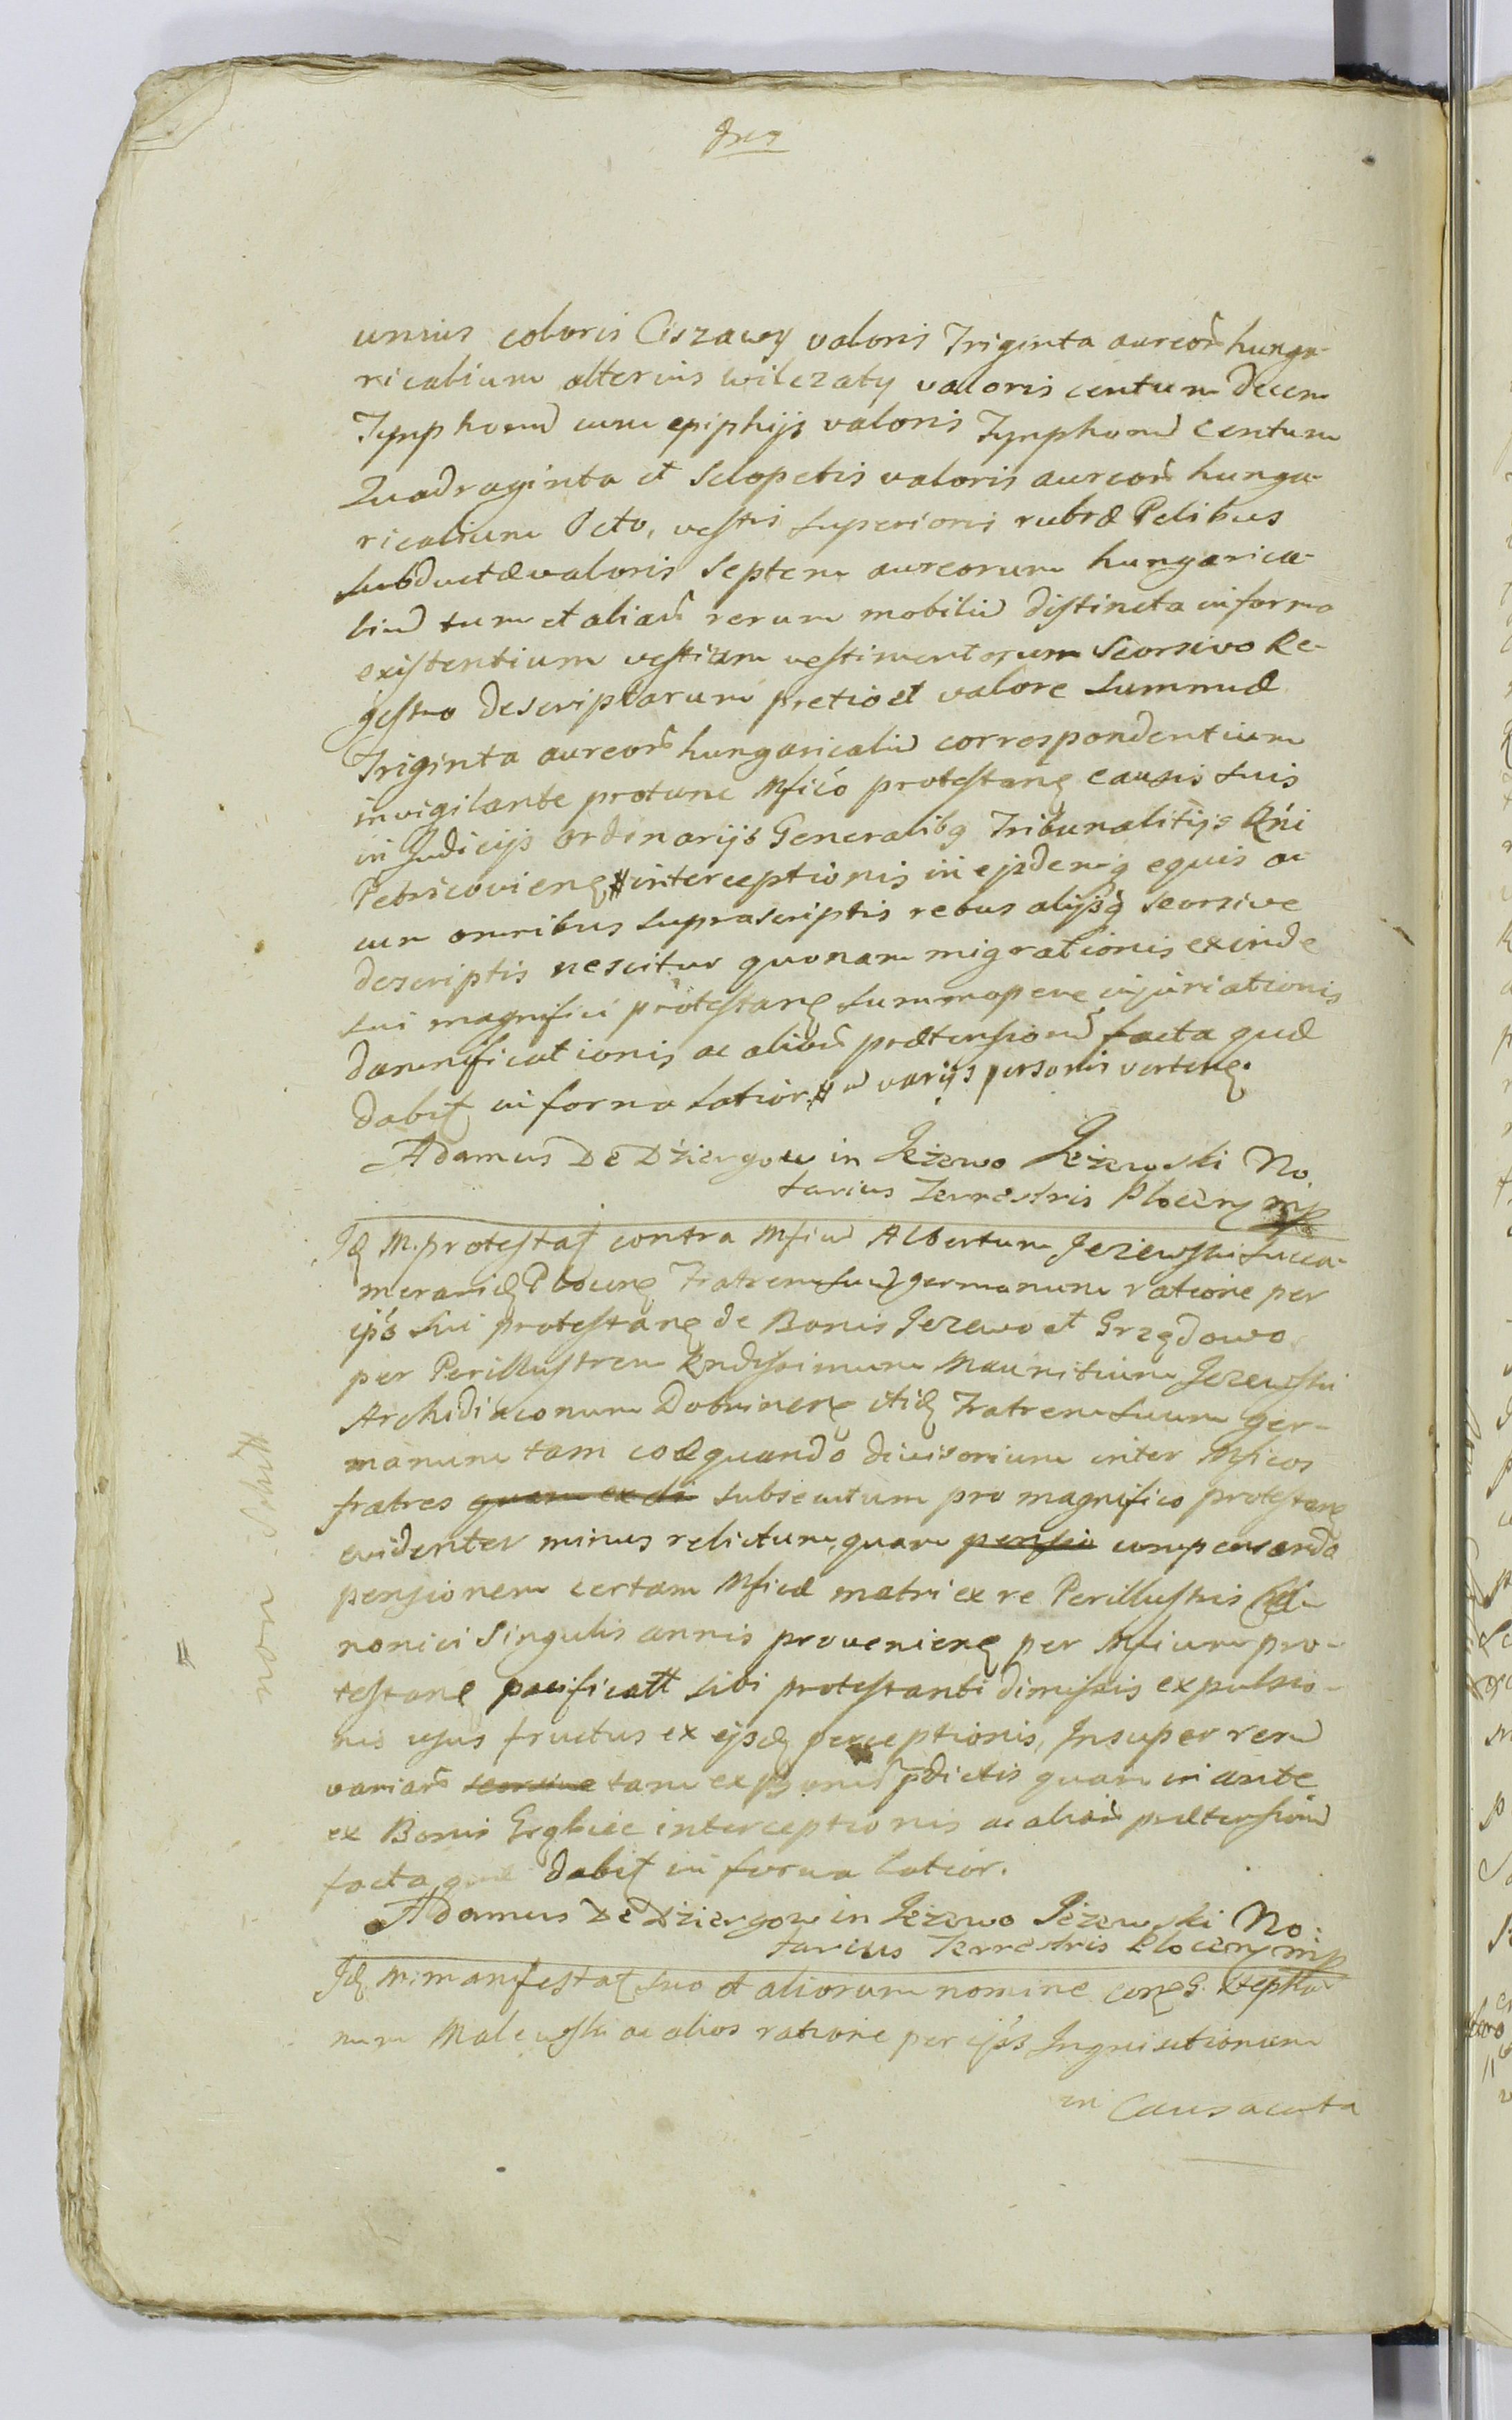 unius coloris Ciszawy valoris Triginta aureoru hunga-
ricalium alterius wilczaty valoris centum decem
Tymphorum cum epiphijs valoris Tymphorum Centum
Quadraginta et Sclopetis valoris aureoru hunga-
ricalium Octo, vestis superioris rubræ Pelibus
subductæ valoris Septem aureorum hungarica-
lium tum et aliaru rerum mobiliu distincta in forma
existentium vestium vestimentorum Seorsivo Re-
gestro descriptarum pretio et valore Summæ
Triginta aureoru hungaricaliu correspondentium
invigilante protunc Mfico protestang causis suis
in Judicijs ordinarijs Generalibq Tribunalitijs Rni
Petricovieng # interceptionis in ejsdemq equis ac
cum omnibus suprascriptis rebus alijsq seorsive
descriptis nescitur quonam migrationis exinde
sui magnifici protestang summopere injuriationis
damnificationis ac aliaru prætensionu facta quæ
dabit in forma latior. # varijs personis verteng.
Adamus De Dźiergow in Jeżewo Jeżewski No-
tarius Terrestris Plocen mp
Id M. protestat contra Mficu Albertum Jeżewski succa-
merarid Ploceng Fratrem suu germanum ratione per
ips sui protestang de Bonis Jezewo et Grzędowo
per Perillustrem Rndissimum Mauritium Jezewski
Archidiaconum Dobrineng itid Fratrem suum ger-
manum tam coæquando divisorium inter Mficos
fratres quam ex di subsecutum pro magnifico protestang
evidenter minus relictum, quam pensio compensando
pensionem certam Mficæ matri ex re Perillustris
nonici Singulis annis provenieng per Mficum pro-
testang pacificatt sibi protestanti dimissis expulsio-
nis usus fructus ex ejsd perceptionis, Insuper reru
variaru seorsive tam ex bonis pdictis quam in ante
ex Bonis interceptionis ac aliaru prætensionu
facta quæ dabit in forma latior.
Adamus De Dźiergow in Jeżewo Jeżewski No-
tarius Terrestris Plocen mp
Id M. manifestat suo et aliorum nomine cong G. Stepha
num Malewski ac alios ratione per ejs Inquisitionum
in Causa certa